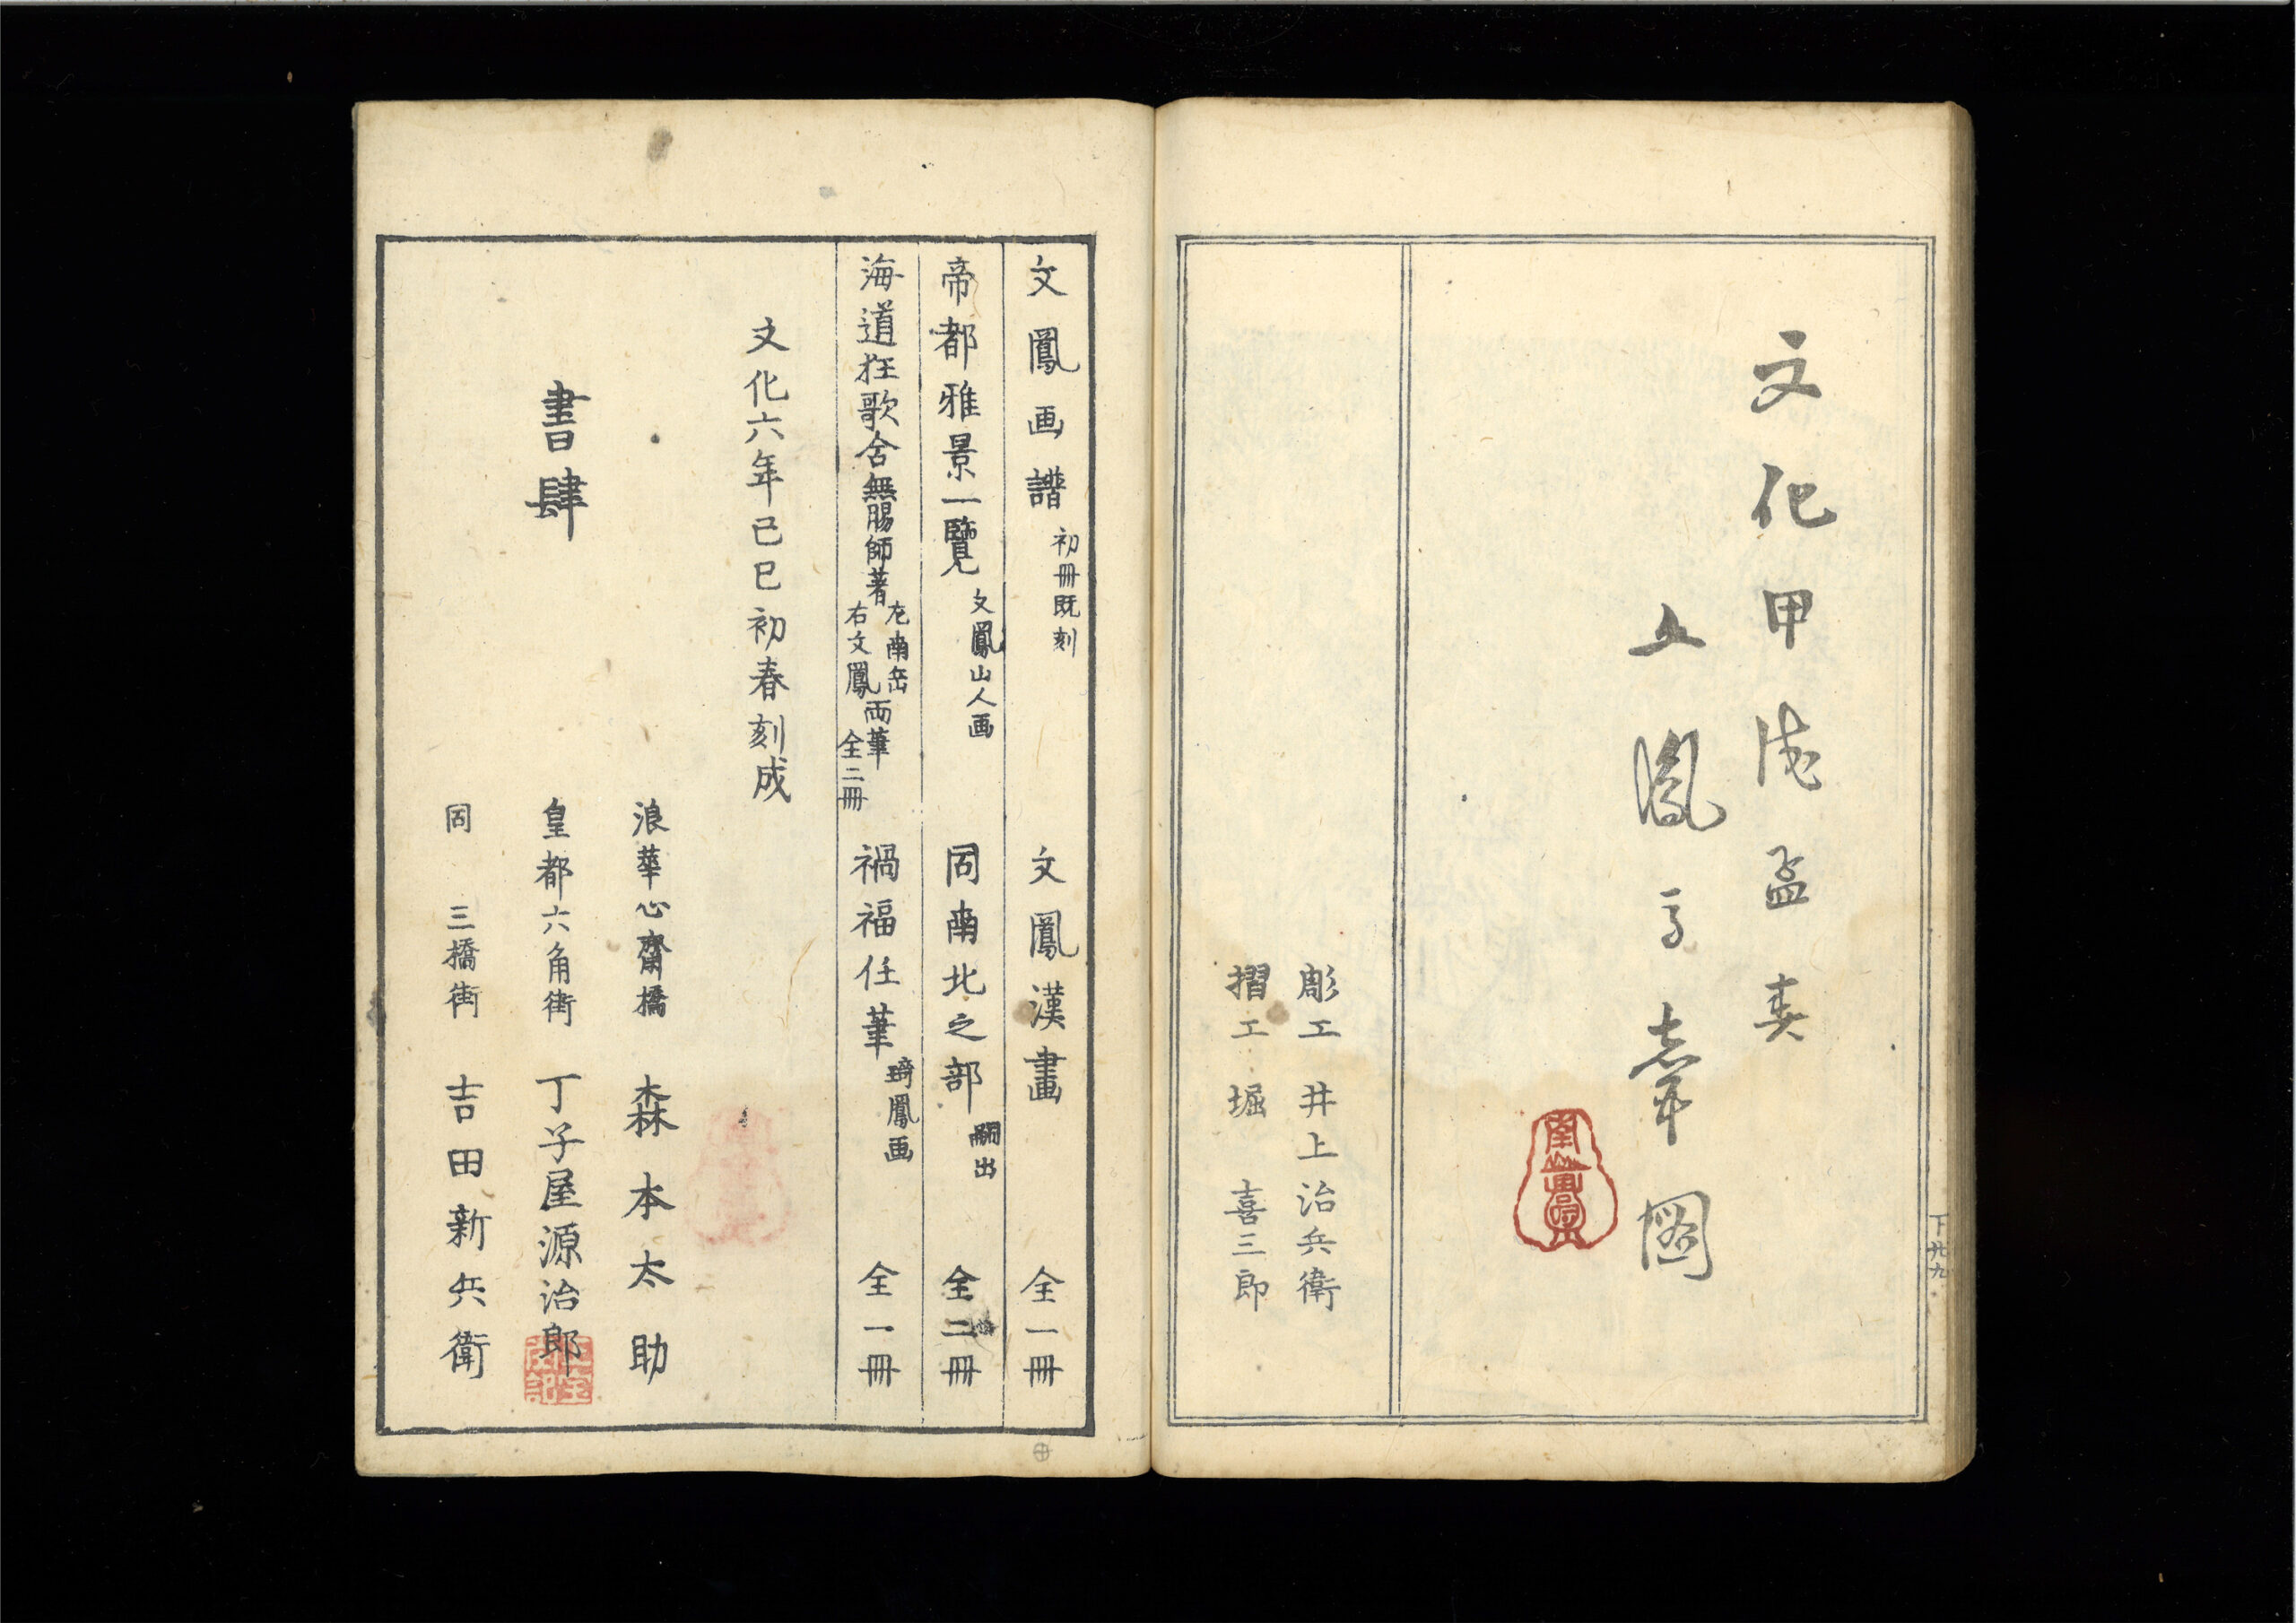 文化甲戌孟
文鳳馬聲圖
彫工 井上治兵衛
摺工 堀 喜三郎
下廿九
文鳳画譜 初冊既刻 文鳳漢畫 全一冊
帝都雅景一覽 文鳳山人画 同南北之部 嗣出 全二冊
海道狂歌合 無腸師著 左南岳 右文鳳 両筆 全二冊 禍福任筆 琦鳳画 全一冊
文化六年己巳初春刻成
書肆
浪華心齋橋 森本太助
皇都六角街 丁子屋源治郎
同 三橋街 吉田新兵衛